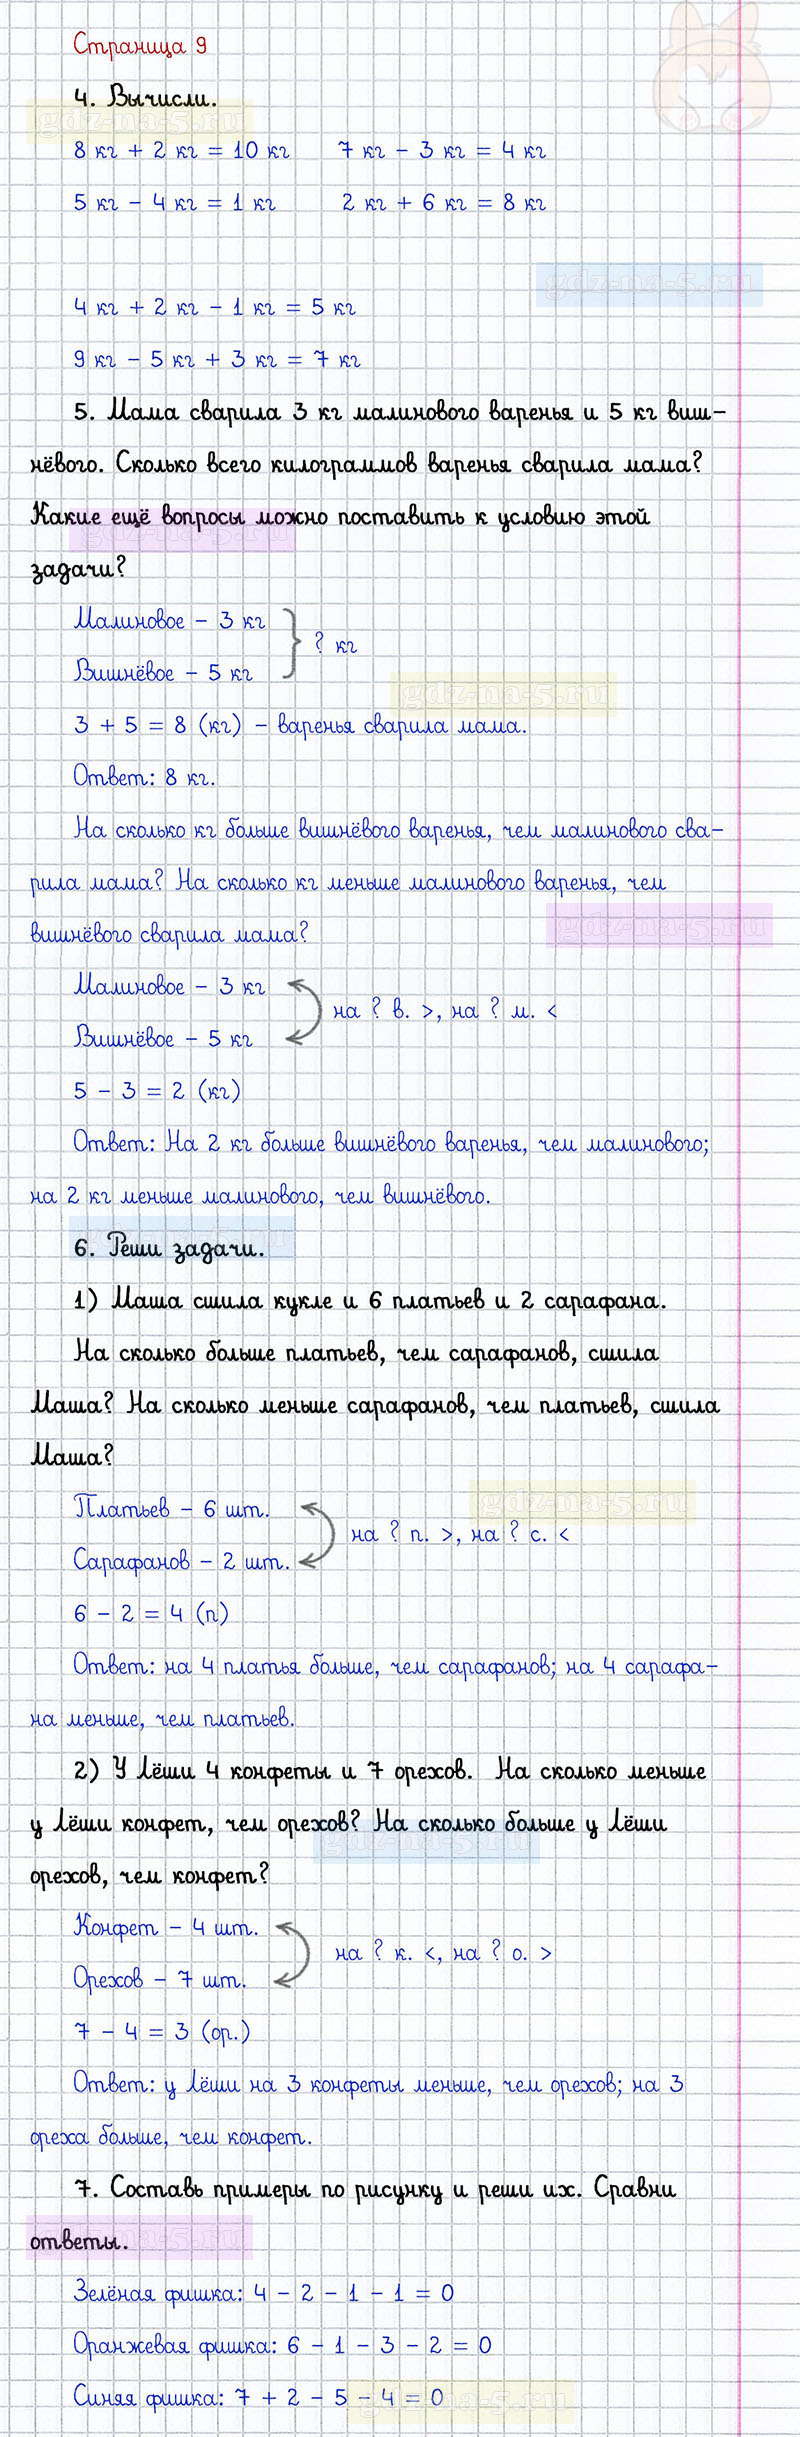 Страница 9
4. Вычисли.
gdz-na-5.ru
8 кг + 2 кг = 10 кг 7 кг - 3 кг = 4 кг
5 кг - 4 кг = 1 кг 2 кг + 6 кг = 8 кг
gdz-na-5.ru
4 кг + 2 кг - 1 кг = 5 кг
9 кг - 5 кг + 3 кг = 7 кг
5. Мама сварила 3 кг малинового варенья и 5 кг виш-
нёвого. Сколько всего килограммов варенья сварила мама?
Какие ещё вопросы можно поставить к условию этой
gdz-na-5.ru
задачи?
Малиновое - 3 кг
? кг
Вишнёвое - 5 кг
gdz-na-5.ru
3 + 5 = 8 (кг) - варенья сварила мама.
Ответ: 8 кг.
На сколько кг больше вишнёвого варенья, чем малинового сва-
рила мама? На сколько кг меньше малинового варенья, чем
вишнёвого сварила мама?
gdz-na-5.ru
Малиновое - 3 кг
на ? в. >, на ? м. <
Вишнёвое - 5 кг
5 - 3 = 2 (кг)
Ответ: На 2 кг больше вишнёвого варенья, чем малинового;
на 2 кг меньше малинового, чем вишнёвого.
gdz-na-5.ru
6. Реши задачи.
1) Маша сшила кукле и 6 платьев и 2 сарафана.
На сколько больше платьев, чем сарафанов, сшила
Маша? На сколько меньше сарафанов, чем платьев, сшила
Маша?
Платьев - 6 шт.
gdz-na-5.ru
на ? п. >, на ? с. <
Сарафанов - 2 шт.
6 - 2 = 4 (п)
Ответ: на 4 платья больше, чем сарафанов; на 4 сарафа-
на меньше, чем платьев.
2) У Лёши 4 конфеты и 7 орехов. На сколько меньше
у Лёши конфет, чем орехов? На сколько больше у Лёши
gdz-na-5.ru
орехов, чем конфет?
Конфет - 4 шт.
на ? к. <, на ? о. >
Орехов - 7 шт.
7 - 4 = 3 (ор.)
Ответ: у Лёши на 3 конфеты меньше, чем орехов; на 3
ореха больше, чем конфет.
7. Составь примеры по рисунку и реши их. Сравни
gdz-na-5.ru
ответы.
Зелёная фишка: 4 - 2 - 1 - 1 = 0
Оранжевая фишка: 6 - 1 - 3 - 2 = 0
Синяя фишка: 7 + 2 - 5 - 4 = 0
gdz-na-5.ru